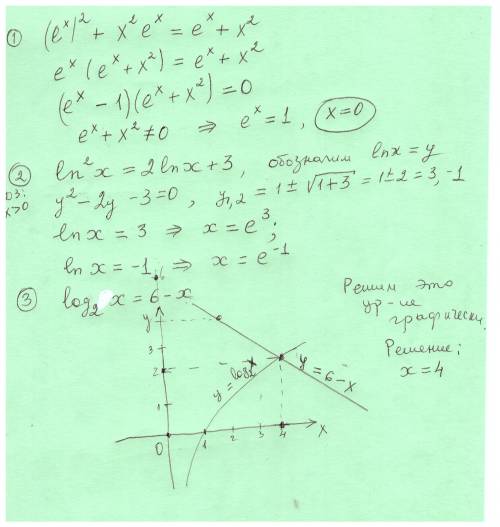 ① (eˣ)² + x² eˣ = eˣ + x²
eˣ (eˣ + x²) = eˣ + x²
(eˣ − 1)(eˣ + x²) = 0
eˣ + x² ≠ 0 ⇒ eˣ = 1, x=0
② ln²x = 2 ln x + 3, обозначим ln x = y
ОЗ: x>0
y² − 2y − 3 = 0, y₁,₂ = 1 ± √(1+3) = 1 ± 2 = 3, −1
ln x = 3 ⇒ x = e³;
ln x = −1 ⇒ x = e⁻¹
③ log₂ x = 6 − x
Решим это
ур-ие
графически.
Решение:
x = 4
y
3
2
1
0
1 2 3 4 x
y = log₂x
y = 6 − x